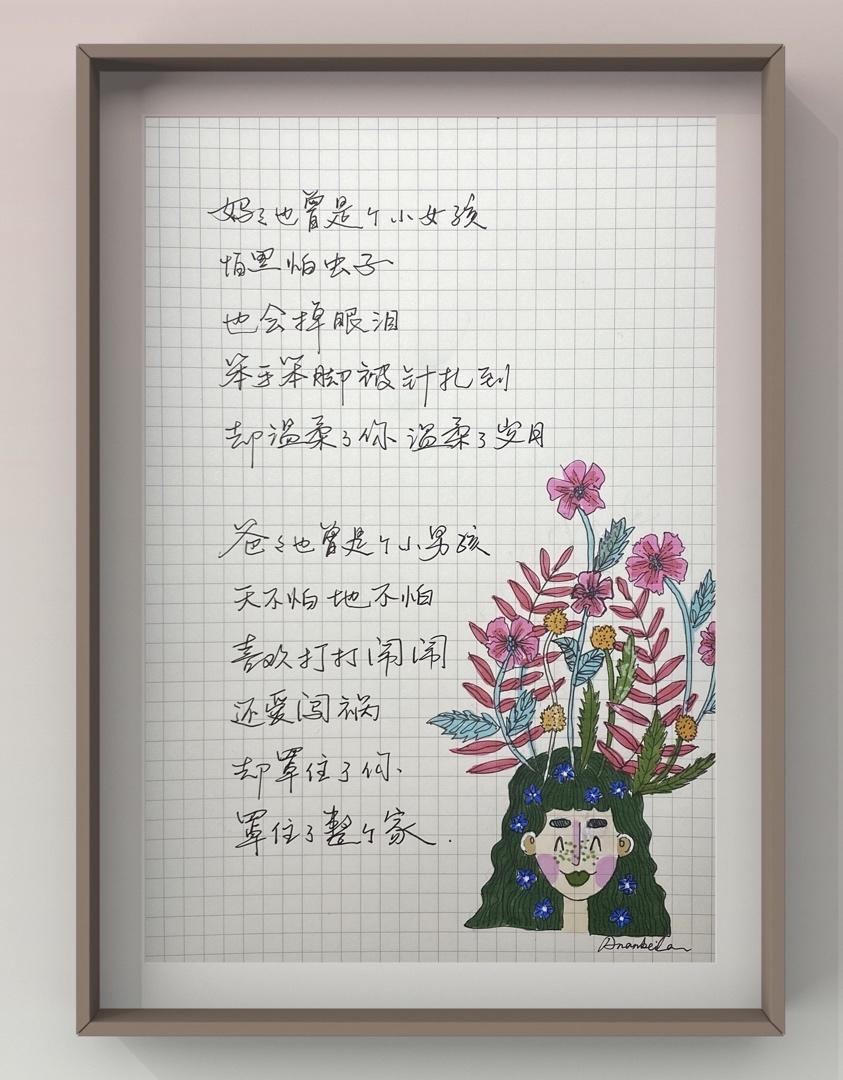 妈々也曾是个小女孩
怕黑怕虫子
也会掉眼泪
笨手笨脚被针扎到
却温柔了你 温柔了岁月
爸々也曾是个小男孩
天不怕地不怕
喜欢打打闹闹
还爱闯祸
却罩住了你
罩住了整个家.